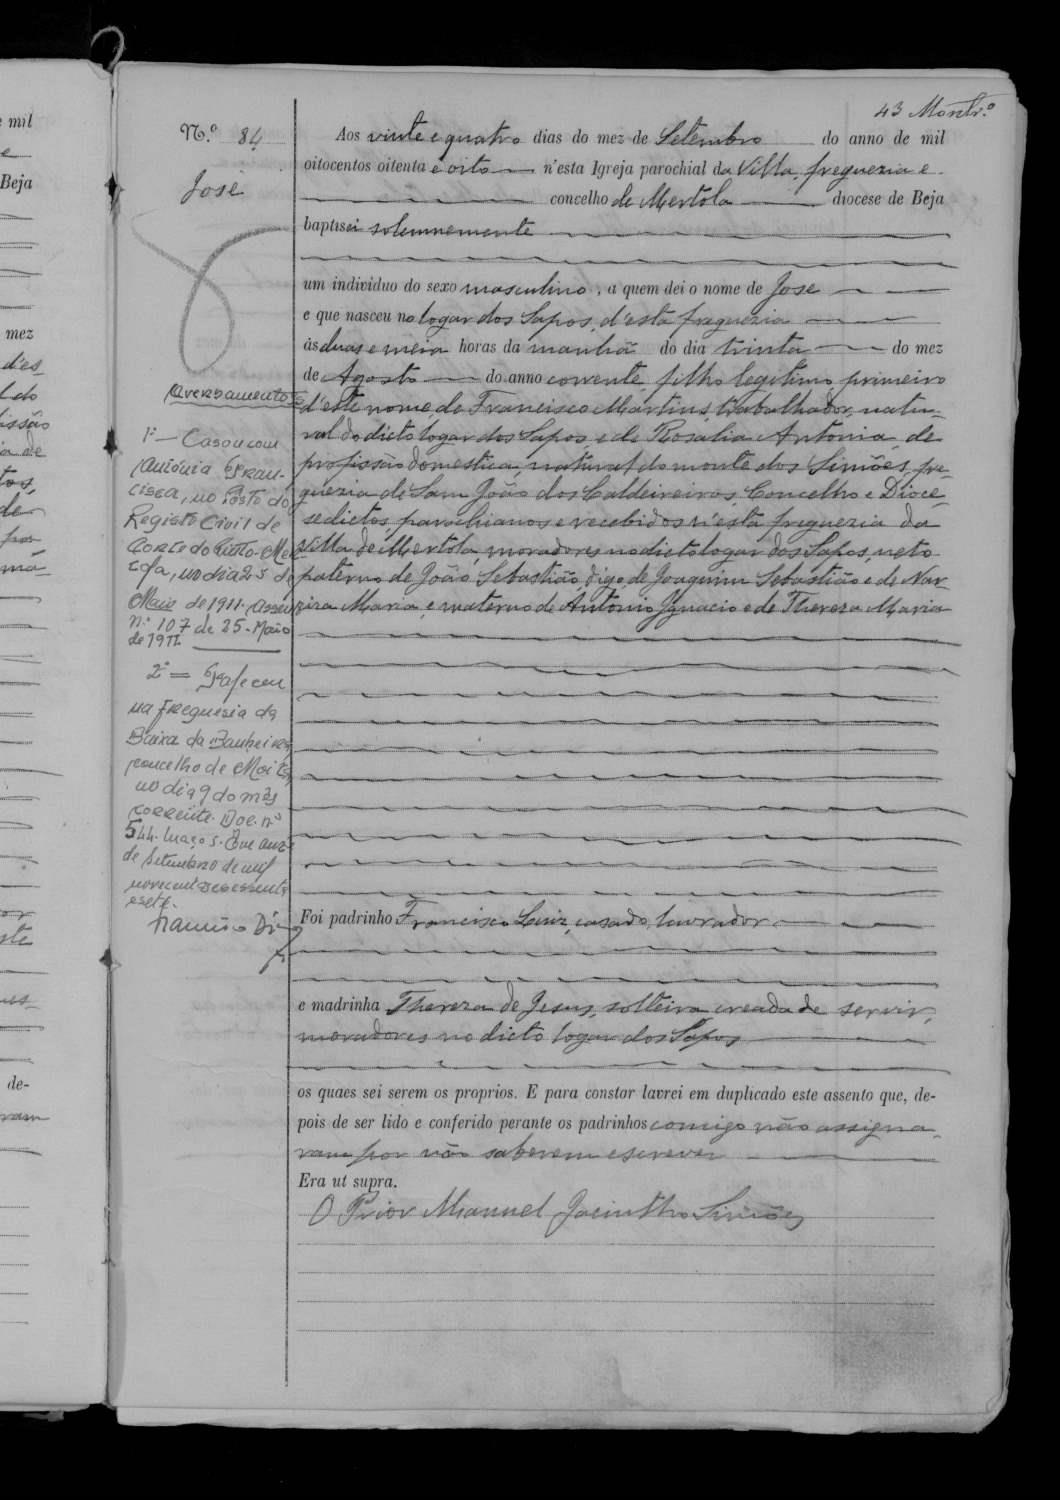 43 Montr.º
N.º 84
José
Aos vinte e quatro dias do mez de Setembro do anno de mil
oitocentos oitenta e oito n'esta Igreja parochial da Villa, freguezia e
concelho de Mertola diocese de Beja
baptisei solemnemente
um individuo do sexo masculino, a quem dei o nome de José
e que nasceu no logar dos Sapos, d'esta freguezia
ás duas e meia horas da manhã do dia trinta do mez
de Agosto do anno corrente, filho legitimo, primeiro
d'este nome, de Francisco Martins, trabalhador, natu-
ral do dicto logar dos Sapos, e de Rosalia Antonia, de
profissão domestica, natural do monte dos Simões, fre-
guezia de Sam João dos Caldeireiros, Concelho e Dioce-
se dictos, parochianos e recebidos n'esta freguezia da
Villa de Mertola, moradores no dicto logar dos Sapos, neto
paterno de João Sebastião, digo de Joaquim Sebastião e de Nar-
ziza Maria, e materno de Antonio Ignacio e de Thereza Maria
Foi padrinho Francisco Luiz, casado, lavrador
e madrinha Thereza de Jesus, solteira creada de servir,
moradores no dicto logar dos Sapos
os quaes sei serem os proprios. E para constar lavrei em duplicado este assento que, de-
pois de ser lido e conferido perante os padrinhos comigo não assigna-
ram por não saberem escrever
Era ut supra.
O Prior Manuel Jacintho Simões
Averbamentos
1º — Casou com
António Fran-
cisca, no Posto do
Registo Civil de
Corte do Pinto-Mer
tola, no dia 25 de
Maio de 1911. Assento
n.º 107 de 25-Maio
de 1911
2º = Faleceu
na freguesia da
Baixa da Banheira,
concelho de Moita,
no dia 9 do mês
corrente. Doc. nº
544. Maço 5. Em onze
de Setembro de mil
novecentos sessenta
e sete.
mil
e
Beja
mez
d'es-
l do
issão
ia de
tos,
de
por
ma-
or
ste
de-
ram